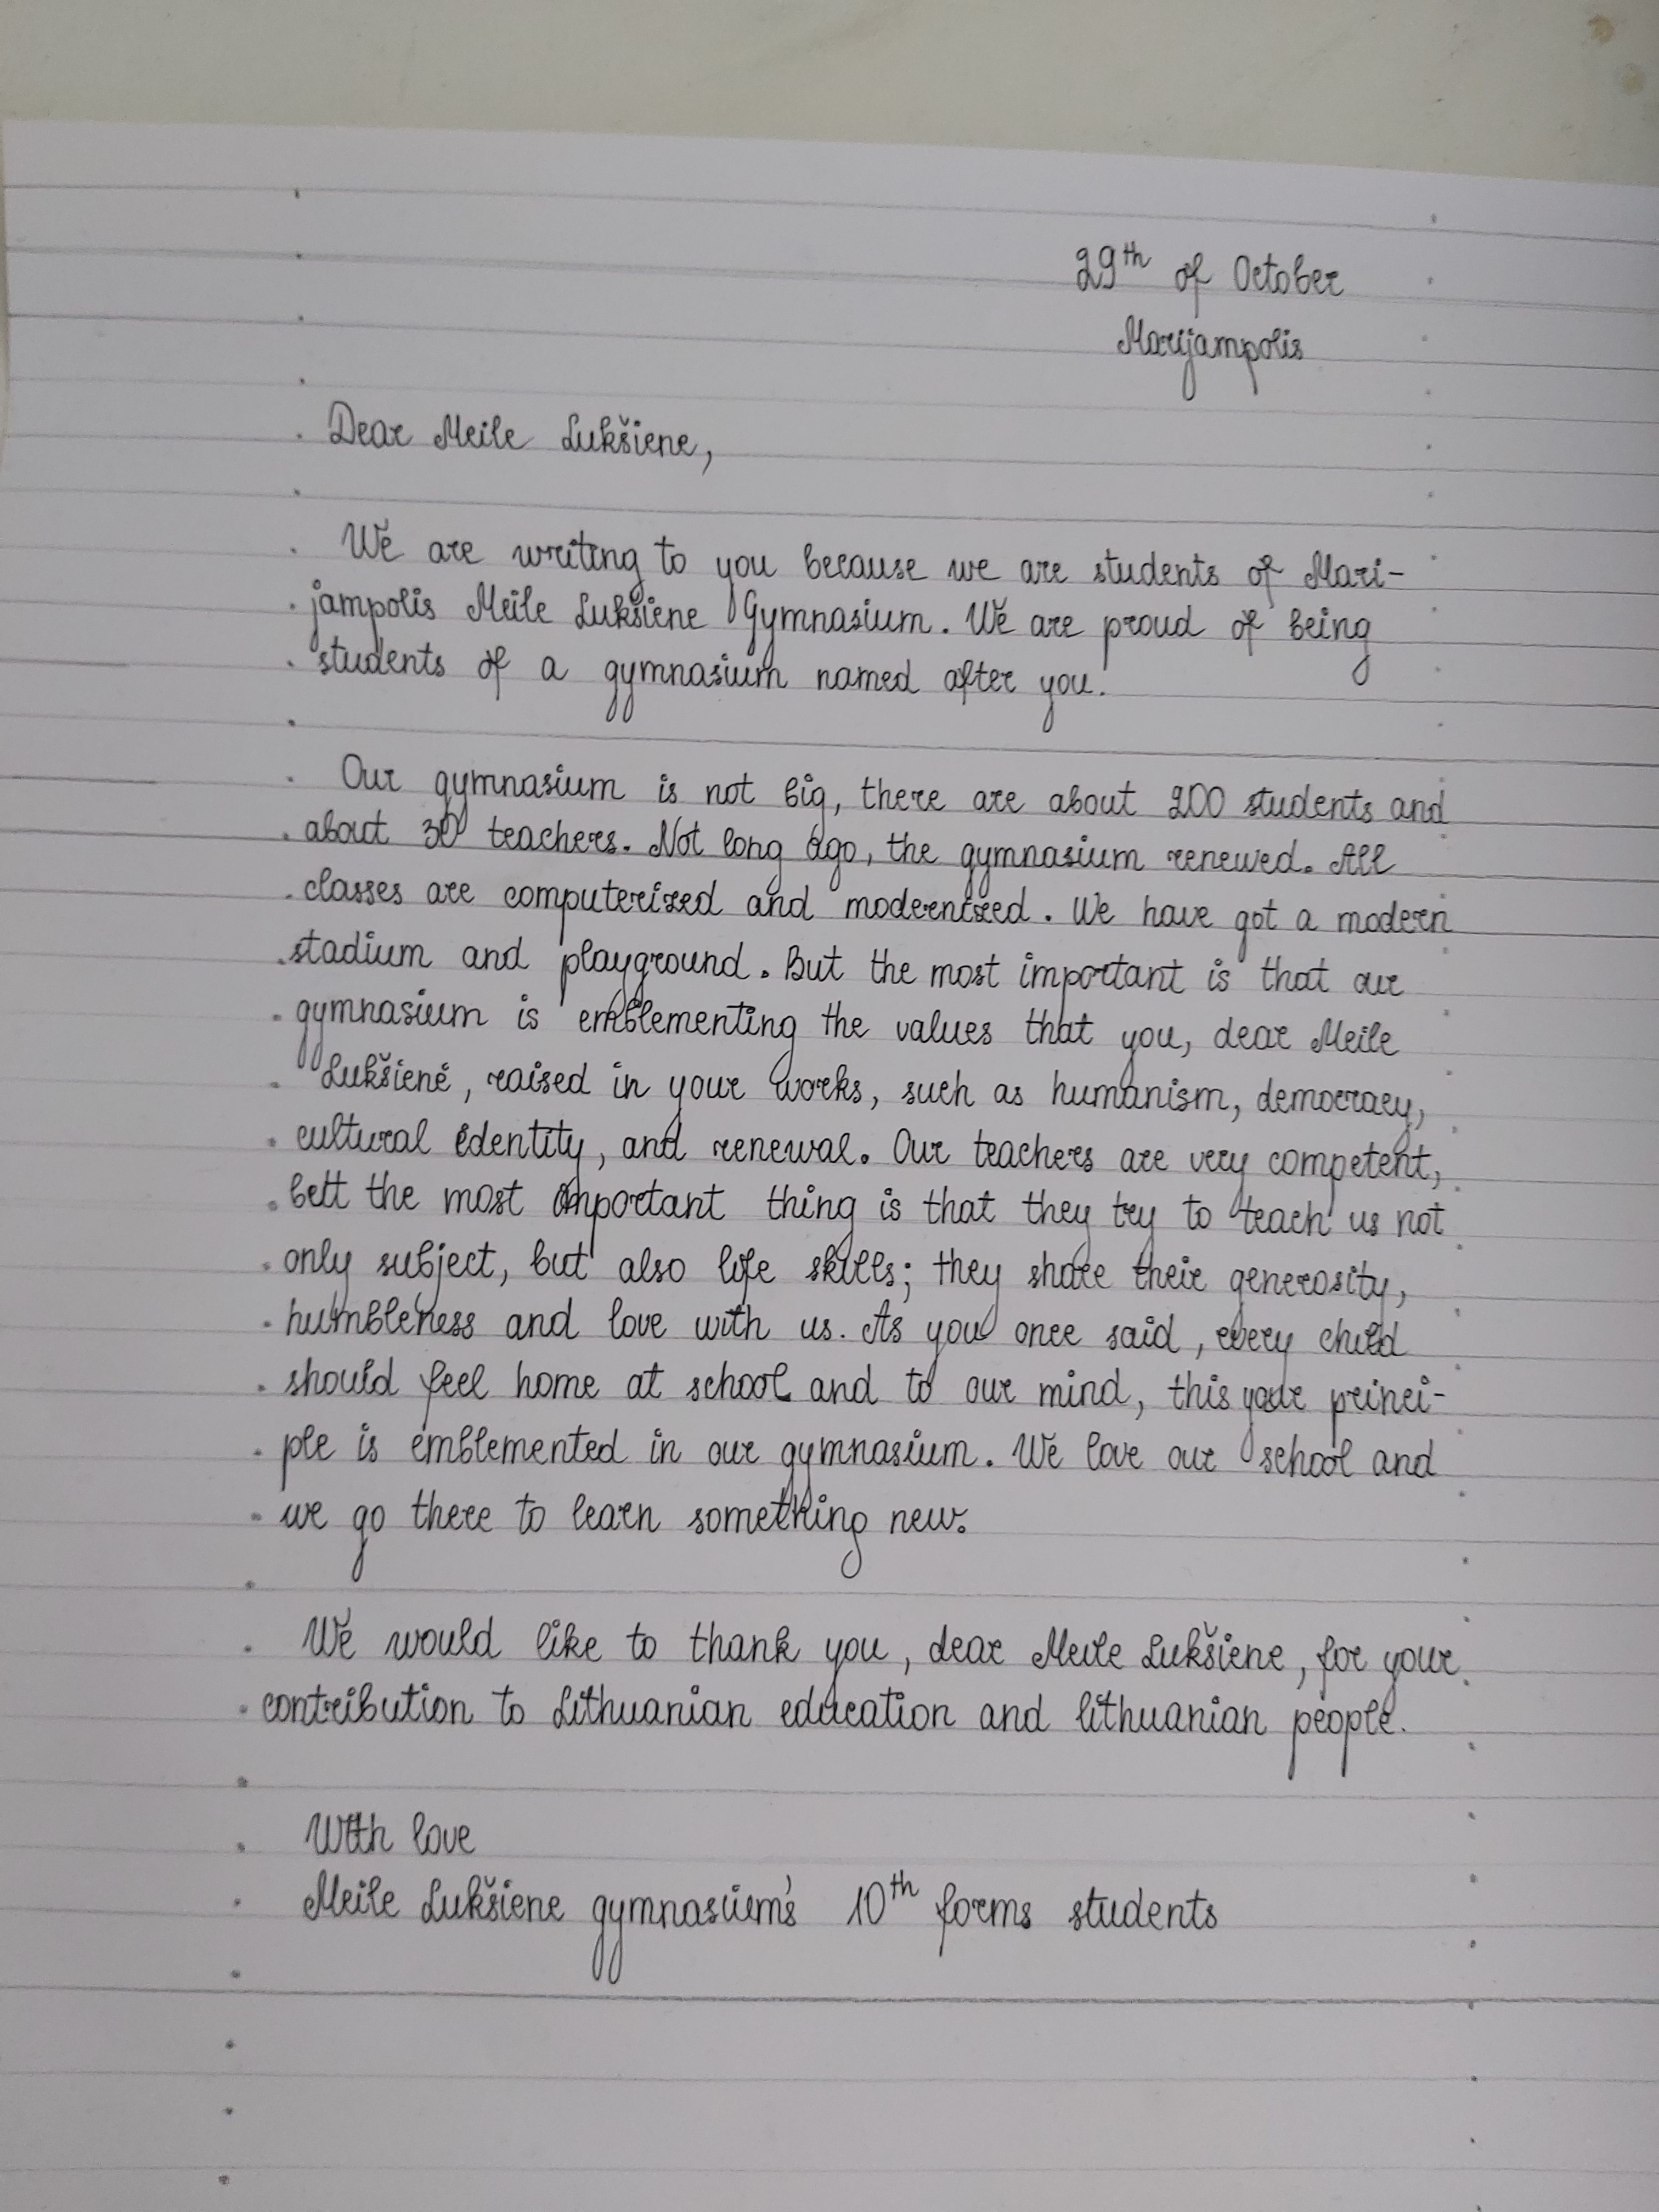 29th of October
Marijampolis
Dear Meile Lukšiene,
We are writing to you because we are students of Mari-
jampolis Meile Lukšiene Gymnasium. We are proud of being
students of a gymnasium named after you.
Our gymnasium is not big, there are about 200 students and
about 30 teachers. Not long ago, the gymnasium renewed. All
classes are computerized and modernized. We have got a modern
stadium and playground. But the most important is that our
gymnasium is emblementing the values that you, dear Meile
Lukšienė, raised in your works, such as humanism, democracy,
cultural identity, and renewal. Our teachers are very competent,
bett the most important thing is that they try to teach us not
only subject, but also life skills; they share their generosity,
humbleness and love with us. As you once said, every child
should feel home at school and to our mind, this your princi-
ple is emblemented in our gymnasium. We love our school and
we go there to learn something new.
We would like to thank you, dear Meile Lukšiene, for your
contribution to Lithuanian education and lithuanian people.
With love
Meile Lukšiene gymnasium's 10th forms students